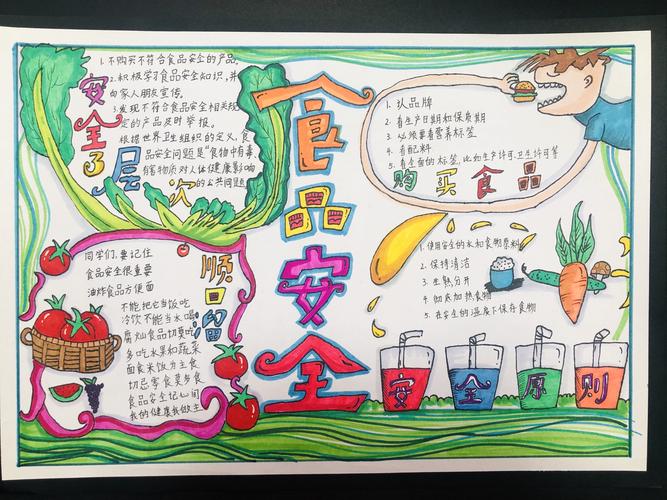 食品安全
安全3层次
1.不购买不符合食品安全的产品.
2.积极学习食品安全知识,并
向家人朋友宣传.
3.发现不符合食品安全相关规
定的产品及时举报.
根据世界卫生组织的定义,食
品安全问题是“食物中有毒、
有害物质对人体健康影响
的公共问题
1.认品牌
2.看生产日期和保质期
3.必须要看营养标签
4.看配料
5.看全面的标签,比如生产许可.卫生许可等
购买食品
顺口溜
同学们,要记住
食品安全很重要
油炸食品方便面
不能把它当饭吃
冷饮不能当水喝
腐烂食品切莫吃
多吃水果和蔬菜
面食米饭为主食
切忌零食莫多食
食品安全记心间
我的健康我做主
1.使用安全的水和食物原料
2.保持清洁
3.生熟分开
4.彻底加热食物
5.在安全的温度下保存食物
安全原则